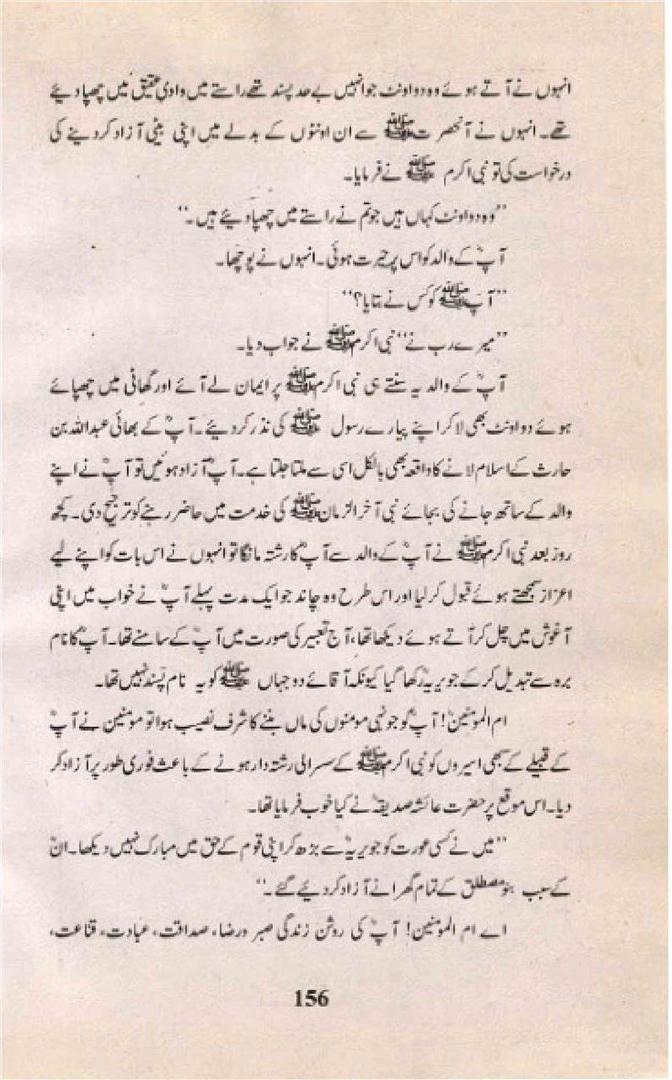 انہوں نے آتے ہوئے وہ دو اونٹ جو انہیں بے حد پسند تھے راستے میں وادی عقیق میں چھپا دیئے
تھے۔ انہوں نے آنحضرت ﷺ سے ان اونٹوں کے بدلے میں اپنی بیٹی آزاد کر دینے کی
درخواست کی تو نبی اکرم ﷺ نے فرمایا۔
’’وہ دو اونٹ کہاں ہیں جو تم نے راستے میں چھپا دیئے ہیں۔‘‘
آپؓ کے والد کو اس پر حیرت ہوئی۔ انہوں نے پوچھا۔
’’آپ ﷺ کو کس نے بتایا؟‘‘
’’میرے رب نے‘‘ نبی اکرم ﷺ نے جواب دیا۔
آپؓ کے والد یہ سنتے ہی نبی اکرم ﷺ پر ایمان لے آئے اور گھاٹی میں چھپائے
ہوئے دو اونٹ بھی لا کر اپنے پیارے رسول ﷺ کی نذر کر دیئے۔ آپؓ کے بھائی عبداللہ بن
حارث کے اسلام لانے کا واقعہ بھی بالکل اسی سے ملتا جلتا ہے۔ آپؓ آزاد ہوئیں تو آپؓ نے اپنے
والد کے ساتھ جانے کی بجائے نبی آخر الزمان ﷺ کی خدمت میں حاضر رہنے کو ترجیح دی۔ کچھ
روز بعد نبی اکرم ﷺ نے آپؓ کے والد سے آپؓ کا رشتہ مانگا تو انہوں نے اس بات کو اپنے لیے
اعزاز سمجھتے ہوئے قبول کر لیا اور اس طرح وہ چاند جو ایک مدت پہلے آپؓ نے خواب میں اپنی
آغوش میں چل کر آتے ہوئے دیکھا تھا، آج تعبیر کی صورت میں آپؓ کے سامنے تھا۔ آپؓ کا نام
برہ سے تبدیل کر کے جویریہؓ رکھا گیا کیونکہ آقائے دو جہاں ﷺ کو یہ نام پسند نہیں تھا۔
ام المومنینؓ! آپؓ کو جونہی مومنوں کی ماں بننے کا شرف نصیب ہوا تو مومنین نے آپؓ
کے قبیلے کے سبھی اسیروں کو نبی اکرم ﷺ کے سسرالی رشتہ دار ہونے کے باعث فوری طور پر آزاد کر
دیا۔ اس موقع پر حضرت عائشہ صدیقہؓ نے کیا خوب فرمایا تھا۔
’’میں نے کسی عورت کو جویریہؓ سے بڑھ کر اپنی قوم کے حق میں مبارک نہیں دیکھا۔ انؓ
کے سبب بنو مصطلق کے تمام گھرانے آزاد کر دیئے گئے۔‘‘
اے ام المومنینؓ! آپؓ کی روشن زندگی صبر و رضا، صداقت، عبادت، قناعت،
156